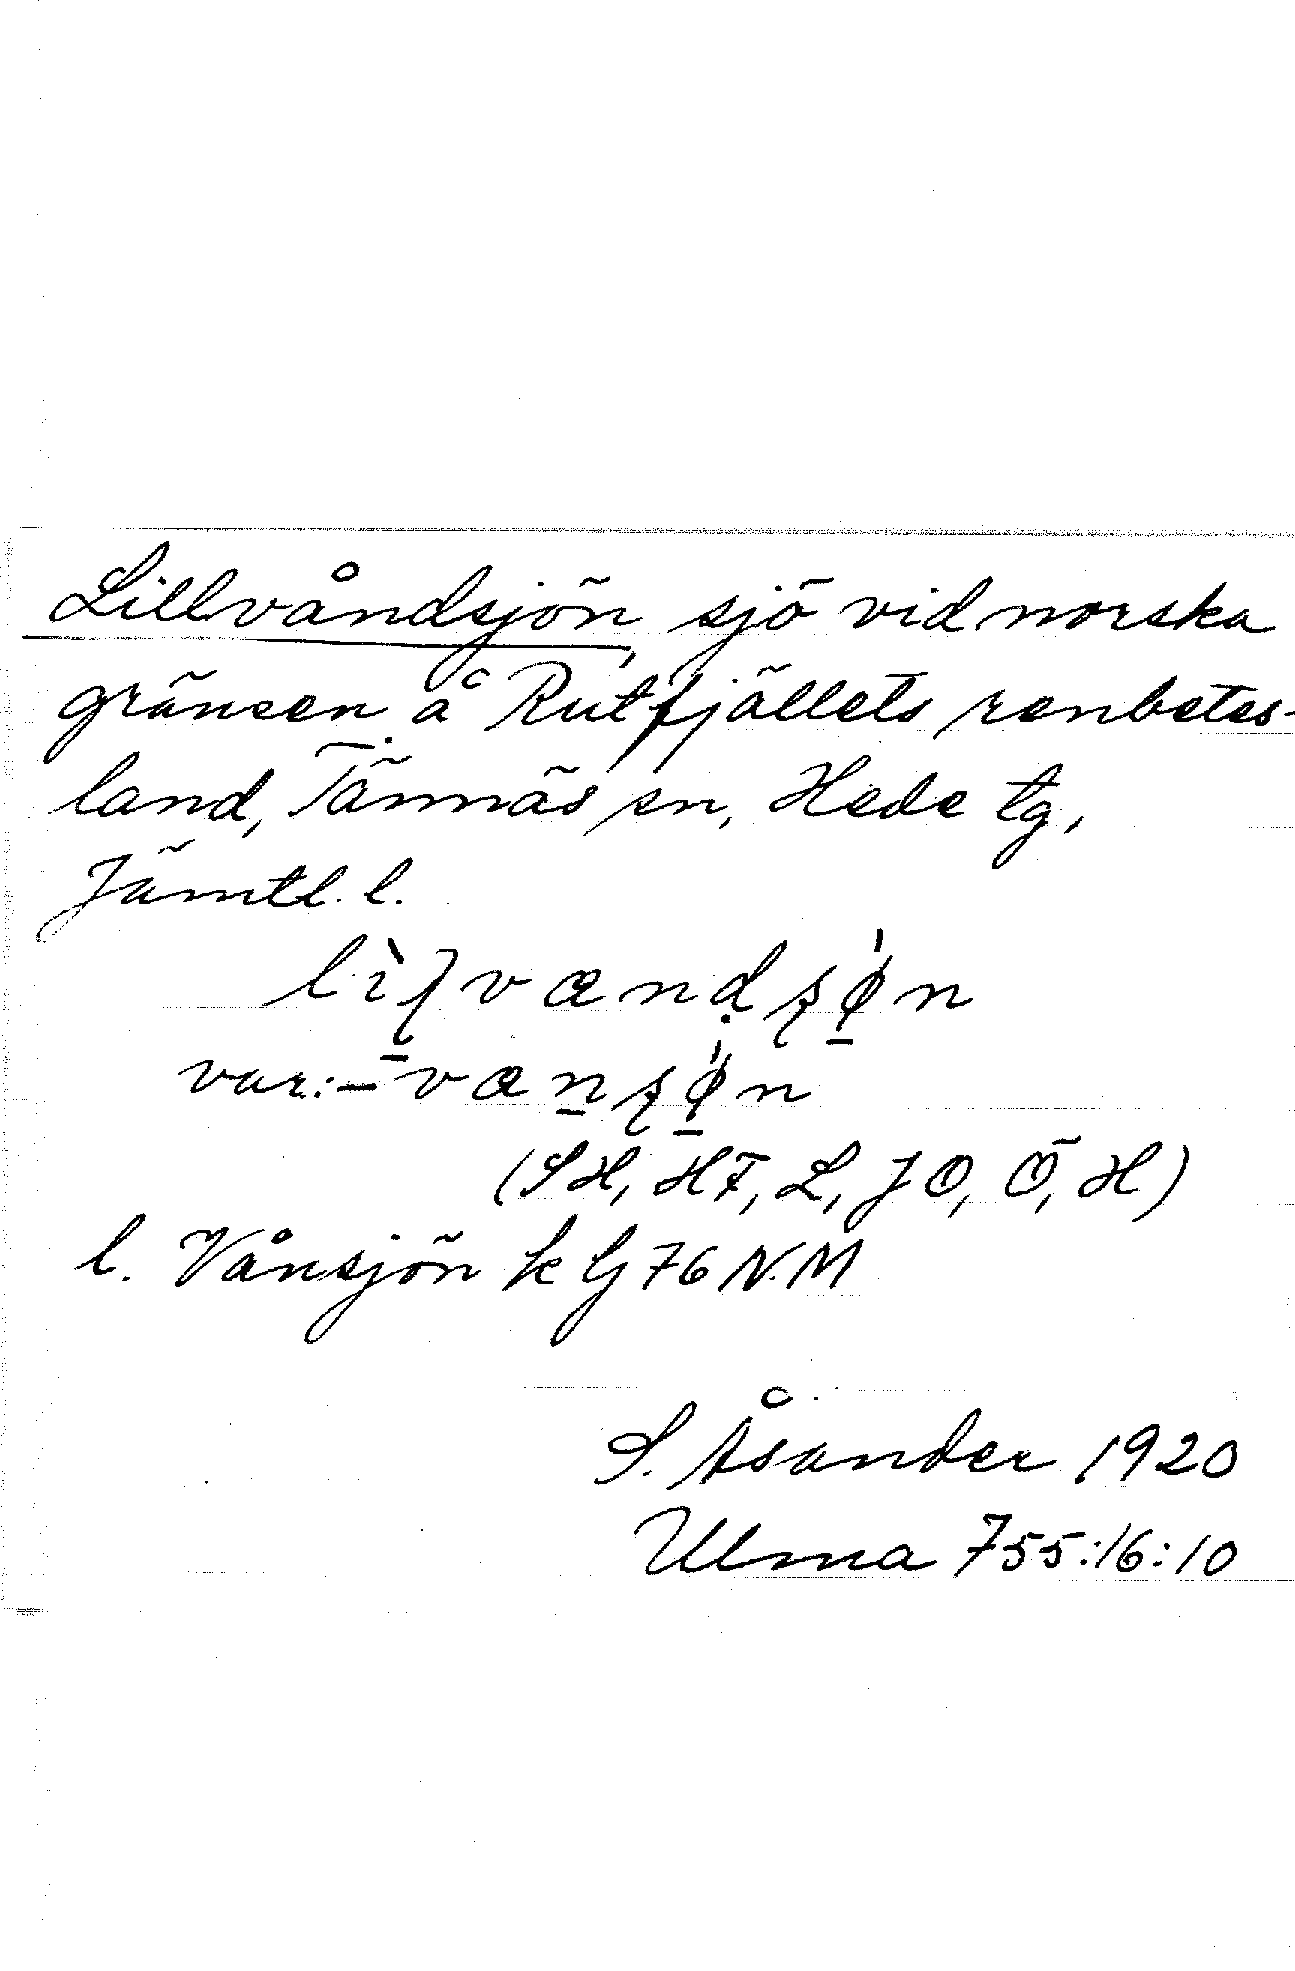 Lillvåndsjön, sjö vid norska
gränsen å Rutfjällets renbetes-
land, Tännäs sn, Hede tg,
Jämtl. l.
lìʅvænḍʂǿ̱n
var.: –væṉʂǿ̱n
(SH, HF, L, JO, Ö, H)
l. Vånsjön k G 76 N.M
S. Åsander 1920
Ulma 755:16:10